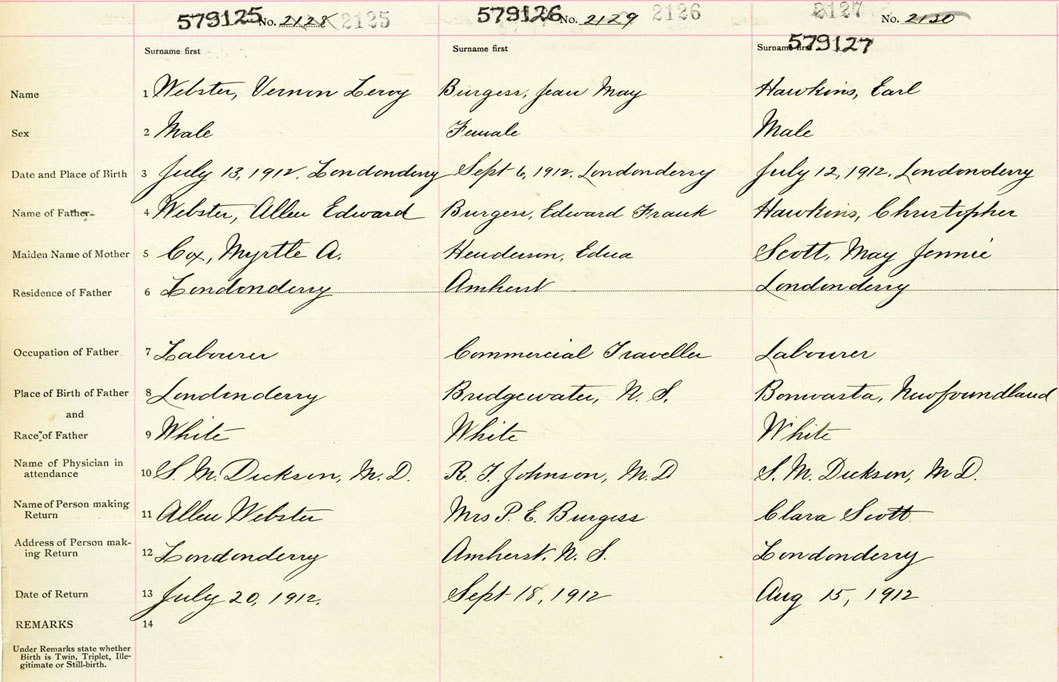 579125 No. 2128 2125 579126 No. 2129 2126 2127 No. 2130
Surname first Surname first Surname first 579127
Name 1 Webster, Vernon Leroy Burgess, Jean May Hawkins, Earl
Sex 2 Male Female Male
Date and Place of Birth 3 July 13, 1912. Londonderry Sept 6, 1912. Londonderry July 12, 1912. Londonderry
Name of Father 4 Webster, Allen Edward Burgess, Edward Frank Hawkins, Christopher
Maiden Name of Mother 5 Cox, Myrtle A. Henderson, Edna Scott, May Jennie
Residence of Father 6 Londonderry Amherst Londonderry
Occupation of Father 7 Labourer Commercial Traveller Labourer
Place of Birth of Father 8 Londonderry Bridgewater, N. S. Bonwarta, Newfoundland
and
Race of Father 9 White White White
Name of Physician in
attendance 10 S. M. Dickson, M. D. R. T. Johnson, M. D S. M. Dickson, M D.
Name of Person making
Return 11 Allen Webster Mrs P. E. Burgess Clara Scott
Address of Person mak-
ing Return 12 Londonderry Amherst, N. S. Londonderry
Date of Return 13 July 20, 1912. Sept 18, 1912 Aug 15, 1912
REMARKS 14
Under Remarks state whether
Birth is Twin, Triplet, Ille-
gitimate or Still-birth.